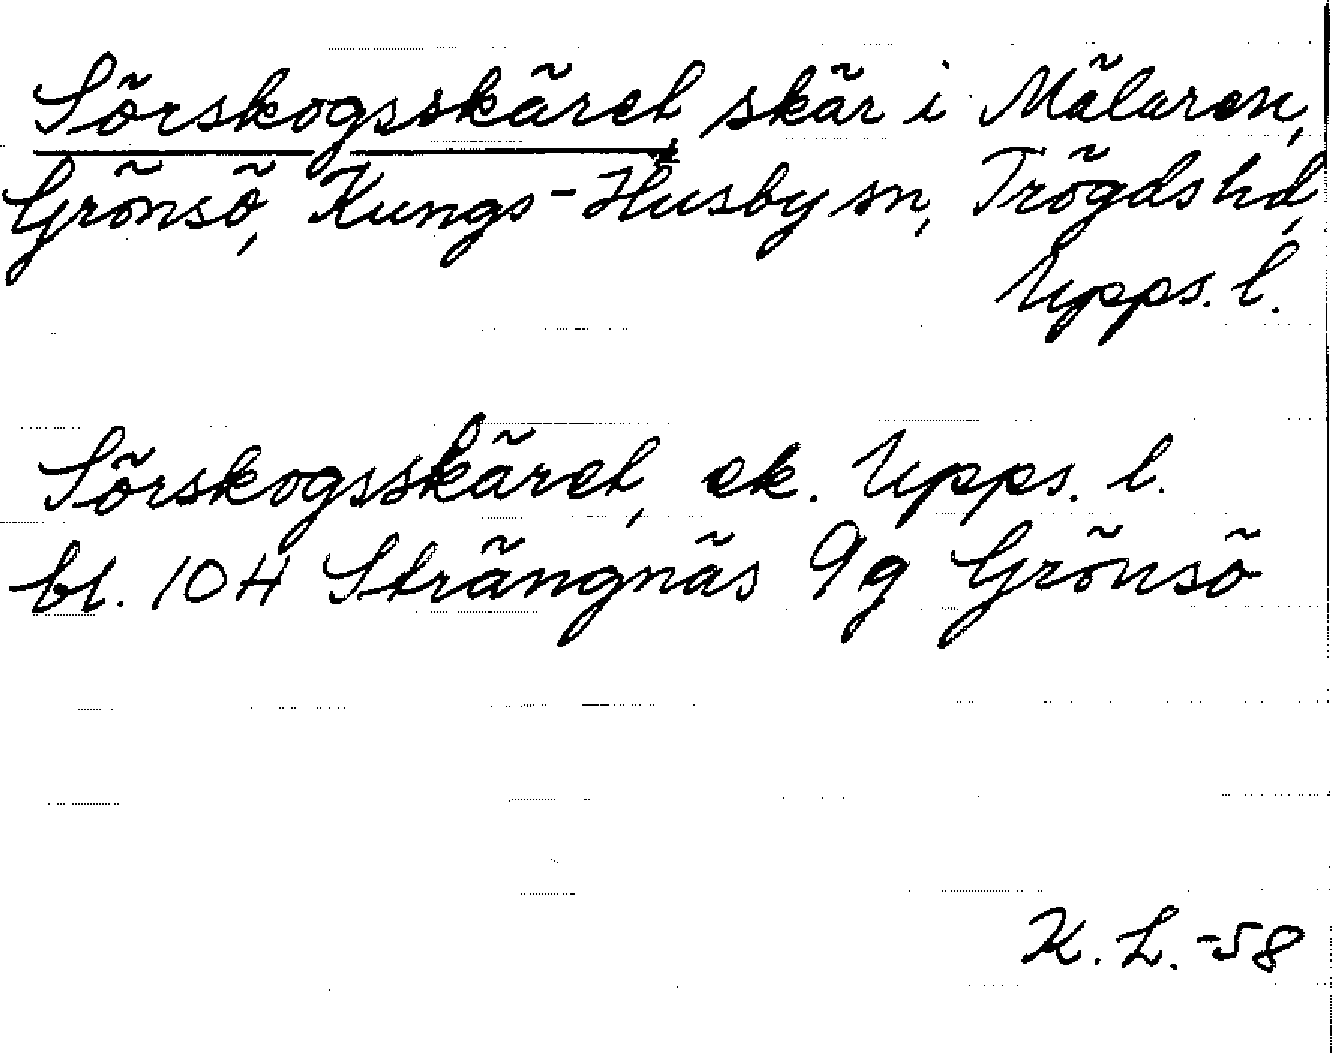 Sörskogsskäret skär i Mälaren,
Grönsö, Kungs-Husby sn, Trögds hd,
Upps. l.
Sörskogsskäret, ek. Upps. l.
bl. 10H Strängnäs 9g Grönsö
K. L. -58